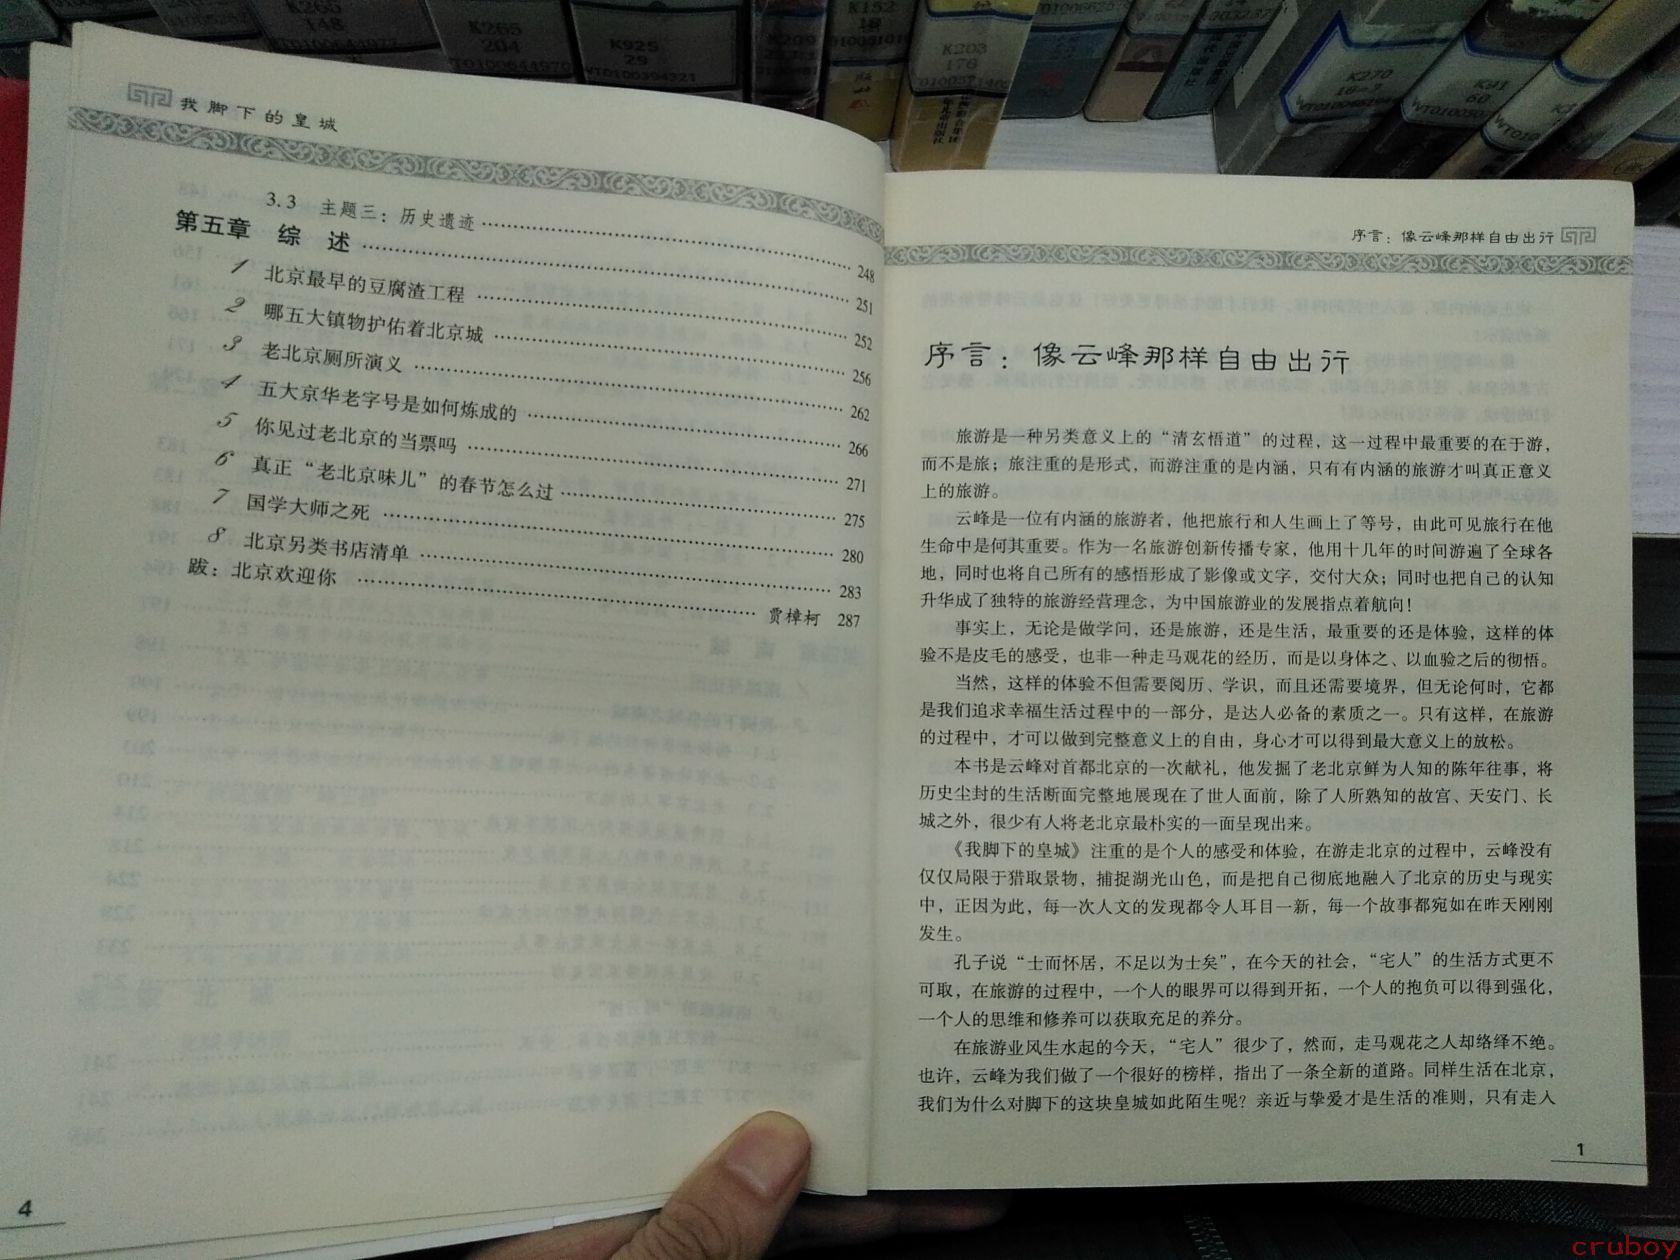 K265
148
K265
204
WT0100644970
K925
29
WT0100394321
K152
K203
176
K270
16-2
K91
60
我脚下的皇城
3.3 主题三：历史遗迹 …… 248
第五章 综 述 …… 251
1 北京最早的豆腐渣工程 …… 252
2 哪五大镇物护佑着北京城 …… 256
3 老北京厕所演义 …… 262
4 五大京华老字号是如何炼成的 …… 266
5 你见过老北京的当票吗 …… 271
6 真正“老北京味儿”的春节怎么过 …… 275
7 国学大师之死 …… 280
8 北京另类书店清单 …… 283
跋：北京欢迎你 …… 贾樟柯 287
4
序言：像云峰那样自由出行
序言：像云峰那样自由出行
旅游是一种另类意义上的“清玄悟道”的过程，这一过程中最重要的在于游，
而不是旅；旅注重的是形式，而游注重的是内涵，只有有内涵的旅游才叫真正意义
上的旅游。
云峰是一位有内涵的旅游者，他把旅行和人生画上了等号，由此可见旅行在他
生命中是何其重要。作为一名旅游创新传播专家，他用十几年的时间游遍了全球各
地，同时也将自己所有的感悟形成了影像或文字，交付大众；同时也把自己的认知
升华成了独特的旅游经营理念，为中国旅游业的发展指点着航向！
事实上，无论是做学问，还是旅游，还是生活，最重要的还是体验，这样的体
验不是皮毛的感受，也非一种走马观花的经历，而是以身体之、以血验之后的彻悟。
当然，这样的体验不但需要阅历、学识，而且还需要境界，但无论何时，它都
是我们追求幸福生活过程中的一部分，是达人必备的素质之一。只有这样，在旅游
的过程中，才可以做到完整意义上的自由，身心才可以得到最大意义上的放松。
本书是云峰对首都北京的一次献礼，他发掘了老北京鲜为人知的陈年往事，将
历史尘封的生活断面完整地展现在了世人面前，除了人所熟知的故宫、天安门、长
城之外，很少有人将老北京最朴实的一面呈现出来。
《我脚下的皇城》注重的是个人的感受和体验，在游走北京的过程中，云峰没有
仅仅局限于猎取景物，捕捉湖光山色，而是把自己彻底地融入了北京的历史与现实
中，正因为此，每一次人文的发现都令人耳目一新，每一个故事都宛如在昨天刚刚
发生。
孔子说“士而怀居，不足以为士矣”，在今天的社会，“宅人”的生活方式更不
可取，在旅游的过程中，一个人的眼界可以得到开拓，一个人的抱负可以得到强化，
一个人的思维和修养可以获取充足的养分。
在旅游业风生水起的今天，“宅人”很少了，然而，走马观花之人却络绎不绝。
也许，云峰为我们做了一个很好的榜样，指出了一条全新的道路。同样生活在北京，
我们为什么对脚下的这块皇城如此陌生呢？亲近与挚爱才是生活的准则，只有走入
1
cruboy